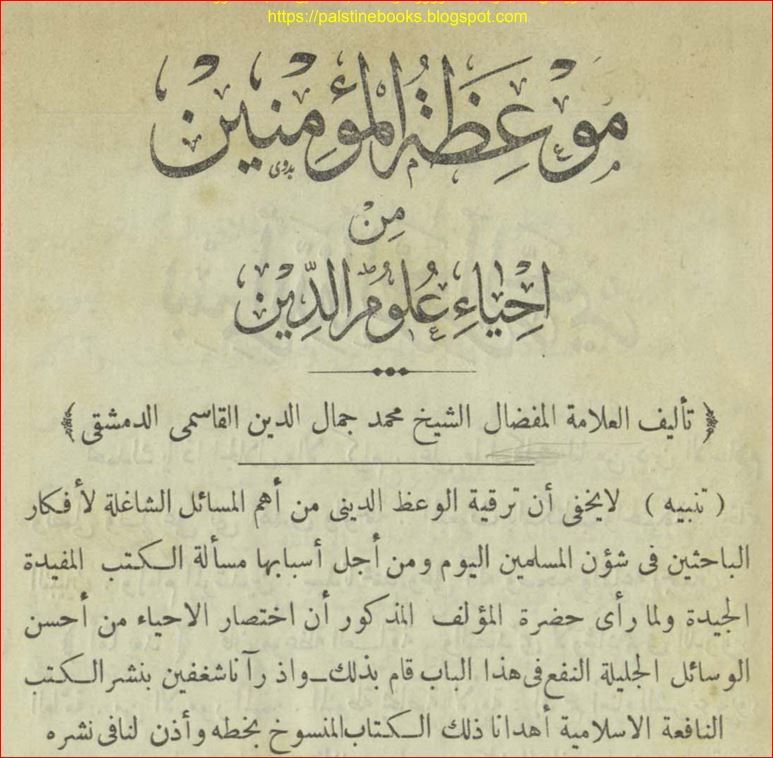 https://palstinebooks.blogspot.com
موعظة المؤمنين
بدوى
من
إحياء علوم الدين
﴿ تأليف العلامة المفضال الشيخ محمد جمال الدين القاسمى الدمشقى ﴾
( تنبيه ) لايخفى أن ترقية الوعظ الدينى من أهم المسائل الشاغلة لأفكار
الباحثين فى شؤن المسلمين اليوم ومن أجل أسبابها مسألة الكتب المفيدة
الجيدة ولما رأى حضرة المؤلف المذكور أن اختصار الاحياء من أحسن
الوسائل الجليلة النفع فى هذا الباب قام بذلك ـ واذ رآنا شغفين بنشر الكتب
النافعة الاسلامية أهدانا ذلك الكتاب المنسوخ بخطه وأذن لنا فى نشره